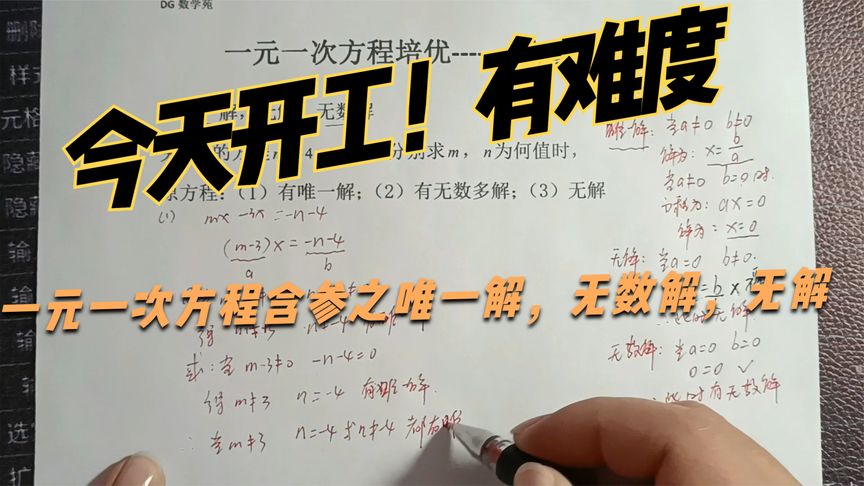 DG 数学苑
一元一次方程培优----
今天开工！有难度
解，
无数解
分别求m，n为何值时，
原方程：（1）有唯一解；（2）有无数多解；（3）无解
(1) mx -3x = -n-4
(m-3)x = -n-4
a b
一元一次方程含参之唯一解，无数解，无解
或：当 m-3≠0 -n-4=0
得 m≠3 n=-4 有唯一解.
∴ 当m≠3 n=-4 或n≠-4 都有唯
唯一解：当a≠0 b≠0
解为：x=b/a
当a≠0 b=0时
方程为：ax=0
解为：x=0
无解：当a=0 b≠0.
无数解：当a=0 b=0
0=0 ✓
∴此时有无数解
删除
样式
元格
隐藏
隐藏
输
输
输
选
扩